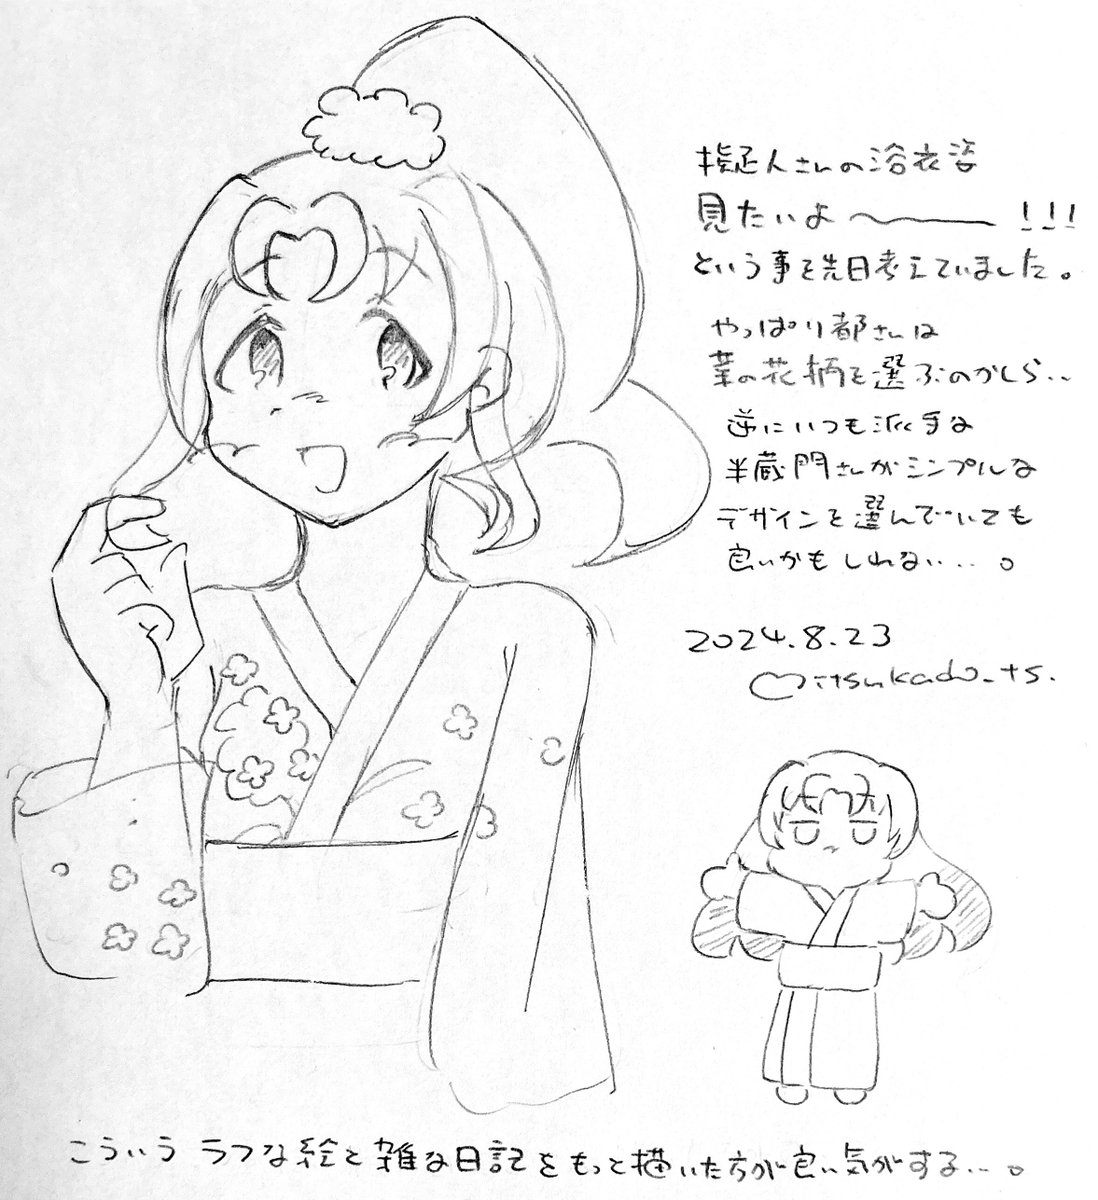 擬人さんの浴衣姿
見たいよ〜!!!
という事を先日考えていました。
やっぱり都さんは
葉の花柄を選ぶのかしら..
逆にいつも派手な
半蔵門さんがシンプルな
デザインを選んでいても
良いかもしれない...。
2024.8.23
mitsukado_ts.
こういうラフな絵と雑な日記をもっと描いた方が良い気がする...。